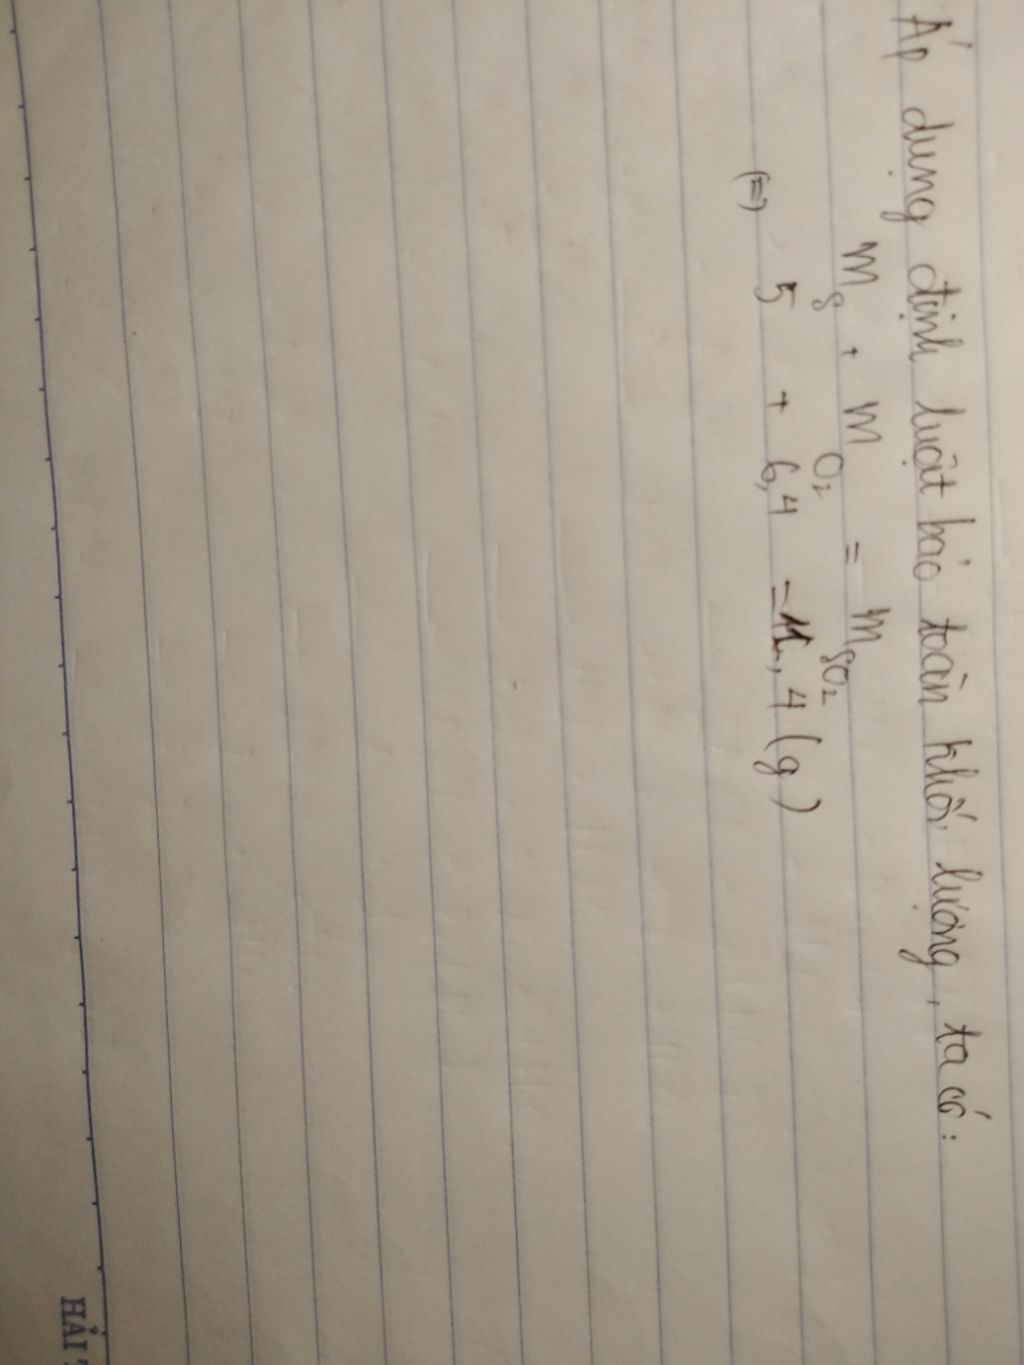 Áp dụng định luật bảo toàn khối lượng, ta có:
m_S + m_O₂ = m_SO₂
(=) 5 + 6,4 = 11,4 (g)
HẢI